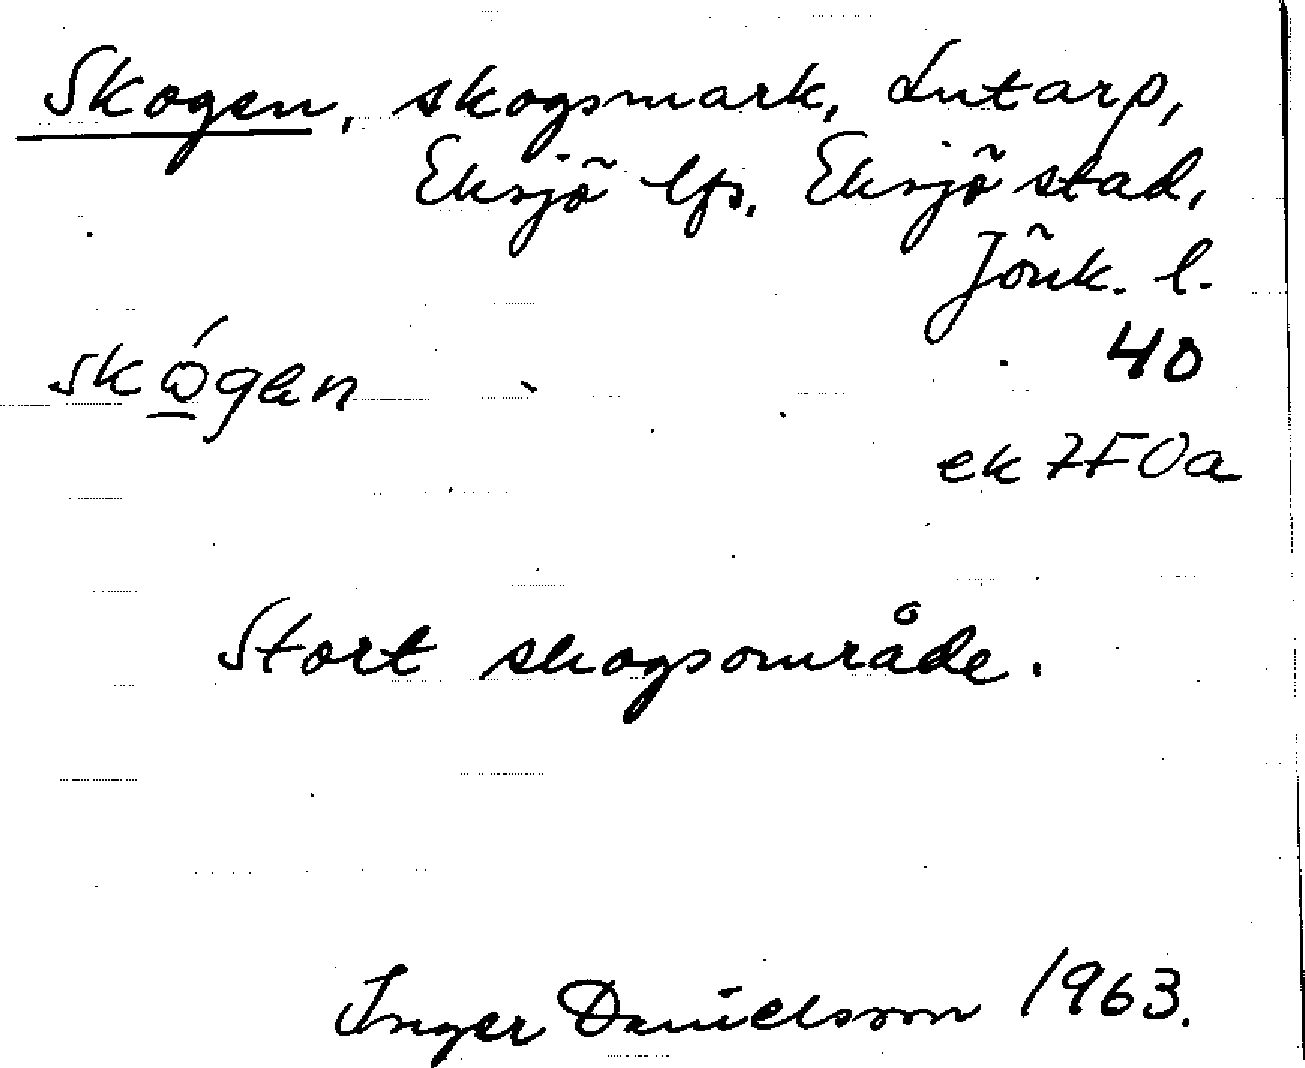 Skogen, skogsmark, Lutarp,
Eksjö lfs. Eksjö stad,
Jönk. l.
skǫ́gen
40
ek 7F0a
Stort skogsområde.
Inger Danielsson 1963.